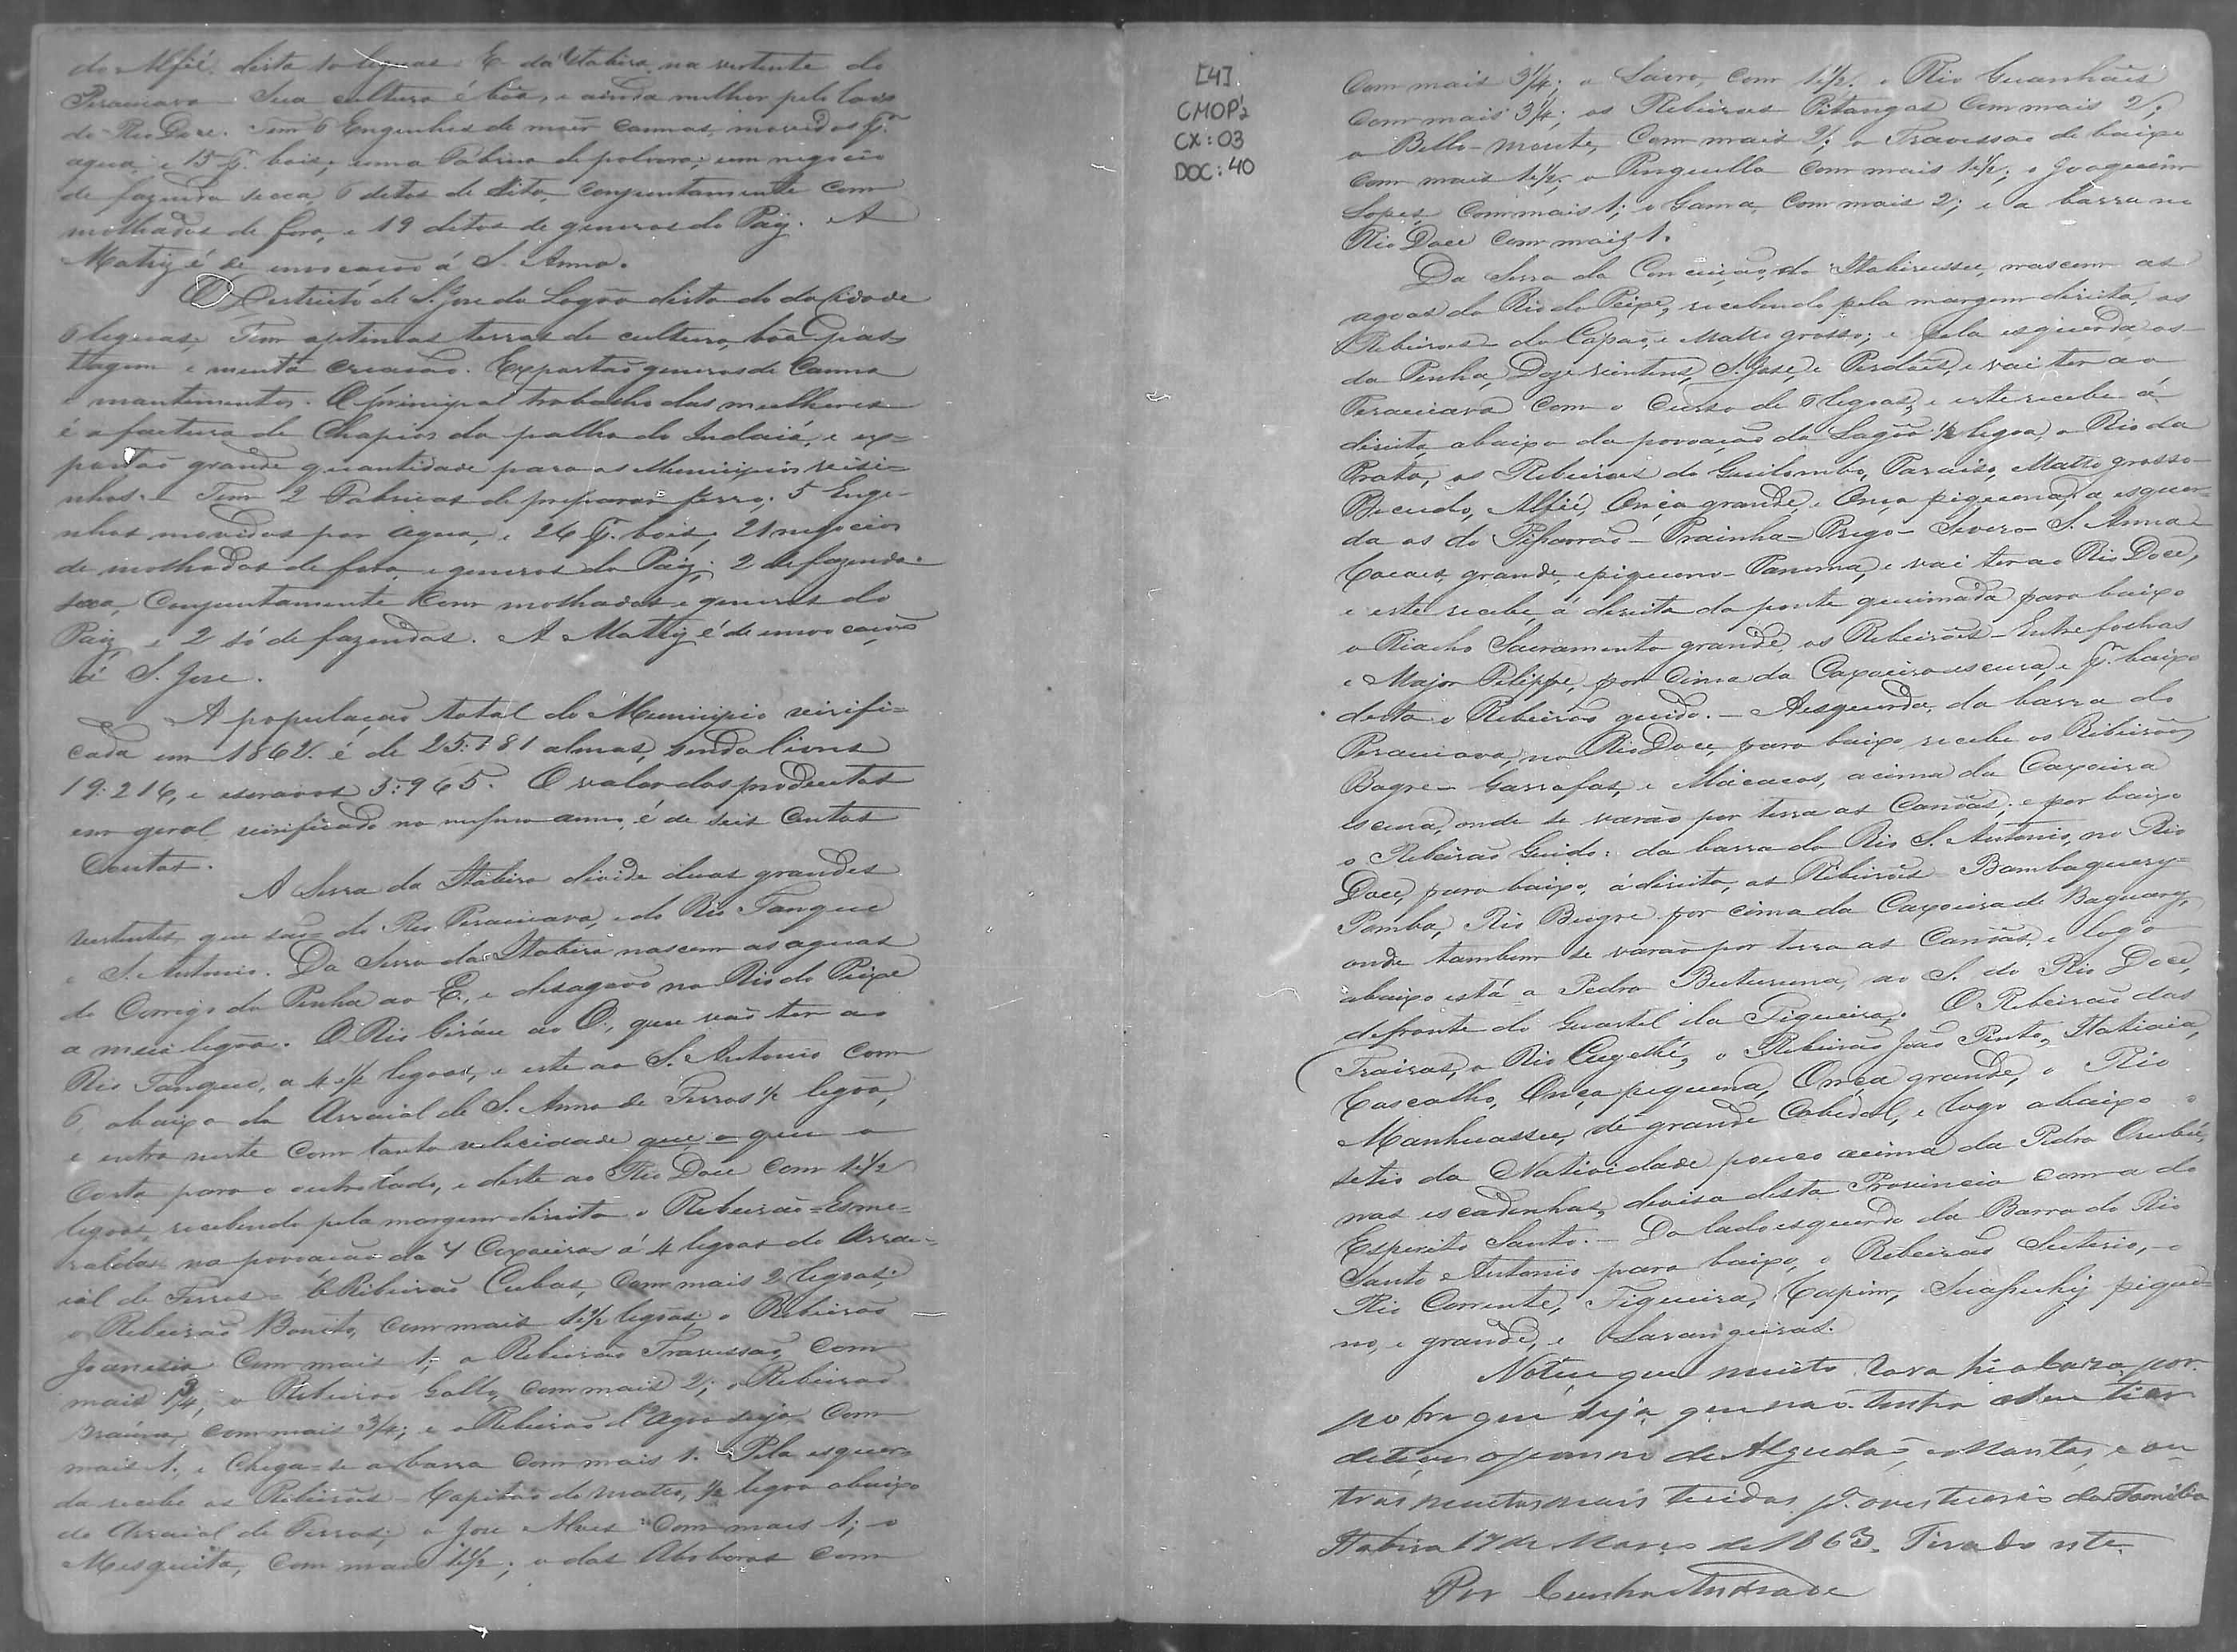 do Alfié dista 10 legoas E da Itabira na vertente do
Piracicava Sua cultura é bôa, e ainda milhor pelo lado
do Rio Doce. Tem 6 Engenhos de moer cannas, movidos pr.
agua, e 15 pr. bois; uma Fabrica de polvora; um negocio
de fazenda secca, 6 ditos de dito conjuntamente com
molhados de fora, e 19 ditos de generos do Paiz. A
Matriz é de invocação á S. Anna.
O Districto de S. Jose da Lagôa dista do da Cidade
6 legoas, Tem optimas terras de cultura, bôa pas-
tagem e muita creação. Exportão generos de Canna
e mantimentos. O principal trabalho das mulheres
é a factura de Chapéos da palha do Indaiá, e ex=
portão grande quantidade para os Municipios visi=
nhos. Tem 2 Fabricas de preparar ferro; 5 Enge-
nhos movidos por agua, e 26 pr. bois, 21 negocios
de molhados de fora, e generos do Paiz; 2 de fazenda
secca, Conjuntamente com molhados e generos do
Paiz e 2 só de fazendas. A Matriz é de invocação
á S. Jose.
A população total do Municipio virifi=
cada em 1862. é de 25:181 almas, sendo livres
19:216, e escravos 5:965. O valor dos productos
em geral virificado no mesmo anno, é de seis Centos
Contos.
A Serra da Itabira divide duas grandes
vertentes que são= do Rio Piracicava, e do Rio Tanque
e S. Antonio. Da Serra da Itabira nascem as aguas
do Corrego da Penha ao E., e desagoão no Rio do Peixe
a meia legôa. O Rio Giráu ao O., que vão ter ao
Rio Tanque, a 4 1/2 legoas, e este ao S. Antonio com
6, abaixo do Arraial de S. Anna de Ferros 1/2 legôa,
e entra neste com tanta velocidade que o
Corta para o outro lado, e deste ao Rio Doce com 1 1/2
legoas, recebendo pela margem direita o Ribeirão=Esme=
raldas na povoação da 4 Caxoeiras á 4 legoas do Arra=
ial de Ferros= O Ribeirão Cubas, Com mais 2 legoas;
o Ribeirão Bonito, com mais 1 1/2 legoas; o Ribeirão
Joanesia Com mais 1; o Ribeirão Travessão, Com
mais 3/4; o Ribeirão Gallo, Com mais 2; o Ribeirão
Braúna, Com mais 3/4; e o Ribeirão d'agoa suja Com
mais 1. e Chega-se a barra Com mais 1. Pela esquer=
da recebe os Ribeirões= Capitão do matto, 1/2 legoa abaixo
do Arraial de Ferros; o Jose Alves Com mais 1; o
Mesquita, Com mais 1 1/2; o das Aboboras com
[4]
CMOP2
CX: 03
DOC: 40
Com mais 3/4; o Com 1 1/2. o Rio Guanhães
Com mais 3/4; os Ribeirões Pitangas Com mais 2;
o Bello-monte, Com mais 2; o Travessão de baixo
Com mais 1 1/2; o Com mais 1 1/2; o Joaquim
Lopes Com mais 1; o Gama, Com mais 2; e a barra no
Rio Doce com mais 1.
Da Serra da Conceição do Itabirussu, nascem as
agoas do Rio do Peixe, recebendo pela margem direita, os
Ribeirões do Capão, e Matto grosso; e pela esquerda, os
da Penha, Doze vintens, S. Jose, e Perdões, e vai ter ao
Piracicava Com o Curso de 6 legoas, e este recebe á
direita, abaixo da povoação da Lagôa 1/2 legoa, o Rio da
Prata, os Ribeirões do Quilombo, Paraiso, Matto grosso-
Bicudo, Alfié, Onça grande, e Onça piquena, a esquer=
da os do - Prainha - Prego - Severo - S. Anna-
Cocaes, grande, e piqueno - Panema, e vai ter ao Rio Doce,
e este recebe, á direita da ponte queimada para baixo
o Riacho Sacramento grande, os Ribeirões - Entre folhas
e Major Felippe, por Cima da Caxoeira escura, e pr. baixo
desta o Ribeirão guido. - Aesquerda, da barra do
Piracicava, no Rio Doce, para baixo recebe os Ribeirões
Bagre - Garrafas, e Macacos, acima da Caxoeira
escura, onde se varão por terra as Canôas; e por baixo
o Ribeirão Guido: da barra do Rio S. Antonio, no Rio
Doce, para baixo, á direita, os Ribeirões Bambaquery=
Pamba, Rio Bugre por cima da Caxoeira de Baguary,
onde tambem se varão por terra as Canôas, e logo
abaixo está a Pedra Buturuna, ao S. do Rio Doce,
defronte do Quartel da Figueira. O Ribeirão das
Trairas, o Rio Cuyethé, o Ribeirão João Pinto, Itatiaia,
Cascalho, Onça piquena, Onça grande, o Rio
Manhuassu, de grande Cabedal, e logo abaixo o
sitio da Natividade pouco acima da Pedra Orubú,
nas escadinhas, divisa desta Provincia com a do
Espirito Santo. - Do lado esquerdo da Barra do Rio
Santo Antonio para baixo, o Ribeirão Suterio, - o
Rio Corrente, Figueira, Capim, Suassuhy pique=
no, e grande, e Larangeiras.
Note-se que muito rara he a Caza, por
pobre que seja que não tenha o seu tear
de tecer o panno de Algodão, e Mantas, e ou
tros muitos mais tecidos pa. o vestuario da Familia
Itabira 17 de Março de 1863. Tirado este
Por Cunha Andrade